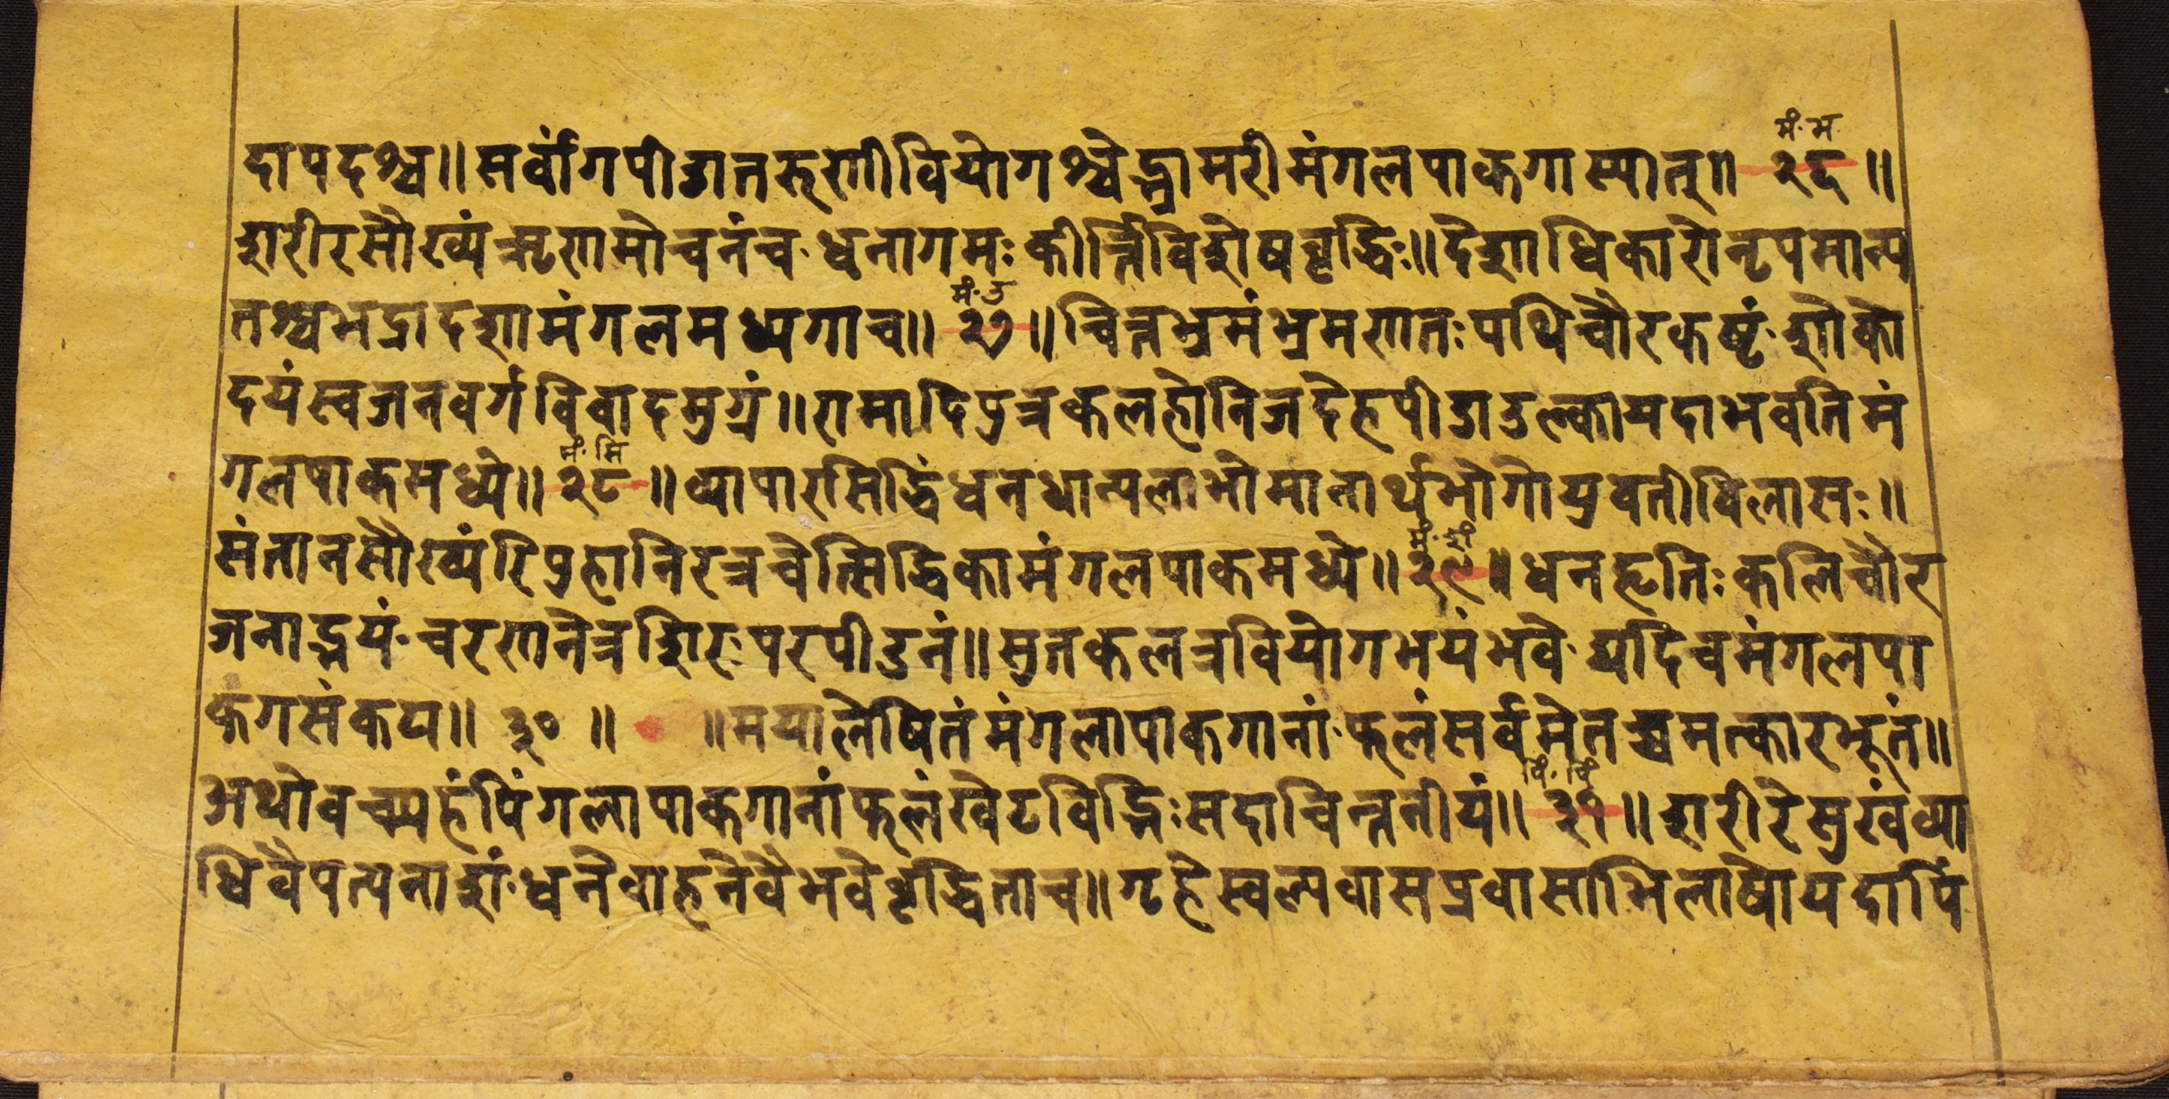 मं॰ भ
दापदश्च॥ सर्वांगपीडातरुणीवियोगश्चेद्भ्रामरीमंगलपाकगास्यात्॥ २६ ॥
शरीरसौख्यंऋणमोचनंच॰ धनागमः कीर्त्तिविशेषवृद्धिः॥ देशाधिकारोनृपमान्य
तश्चभद्रादशामंगलमध्यगाच॥ २७ ॥ चित्तभ्रमंभ्रमणतः पथिचौरकष्टं॰ शोको
मं॰ उ
दयंस्वजनवर्गविवादमुग्रं॥ रामादिपुत्रकलहोनिजदेहपीडाउल्कायदाभवतिमं
मं॰ सि
गलपाकमध्ये॥ २८ ॥ व्यापारसिद्धिंधनधान्यलाभोमानार्थभोगोयुवतीविलासः ॥
मं॰ सं
संतानसौख्यंरिपुहानिरत्रचेत्सिद्धिकामंगलपाकमध्ये॥ २९ ॥ धनहृतिः कलिचौर
जनाद्भयं॰ चरणनेत्रशिरः परपीडनं॥ सुतकलत्रवियोगभयंभवे॰ द्यदिचमंगलपा
कगसंकटा॥ ३० ॥ ॥ मयालेषितंमंगलापाकगानां॰ फलंसर्वमेतच्चमत्कारभूतं॥
पिं॰ पिं
अथोवच्म्यहंपिंगलापाकगानांफलंखेटविद्भिः सदाचिन्तनीयं॥ ३१ ॥ शरीरेसुखंव्या
धिवैपत्यनाशं॰ धनेवाहनेवैभवेवृद्धिताच॥ गृहेस्वल्पवासप्रवासाभिलाषोयदापिं